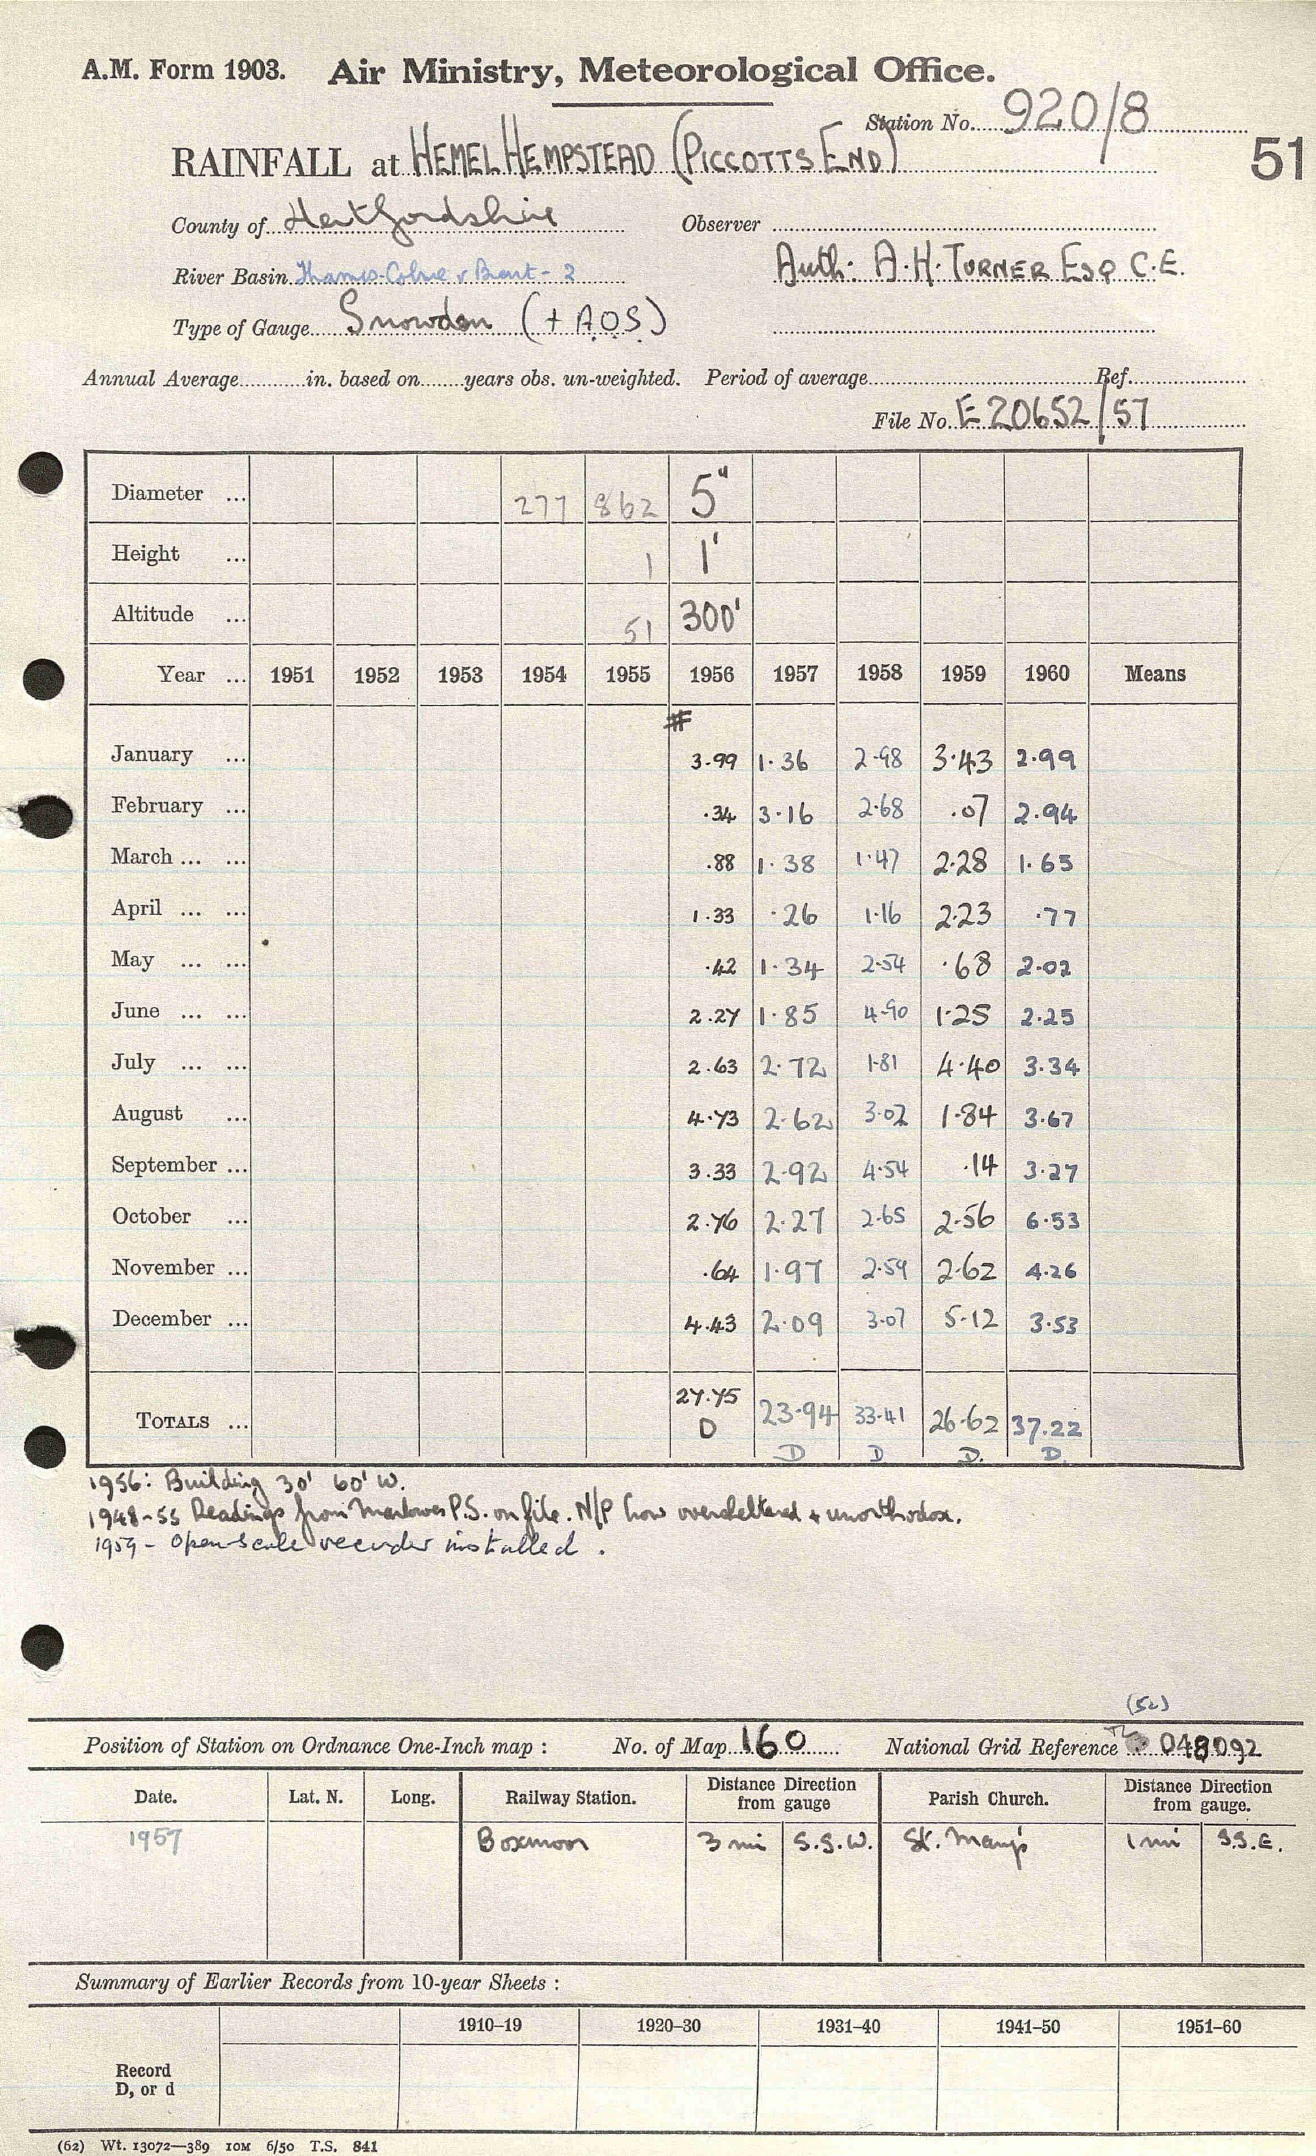 A.M. Form 1903. Air Ministry, Meteorological Office.
Station No. 920/8
51
RAINFALL at HEMEL HEMPSTEAD (PICCOTTS END)
County of Hertfordshire Observer
River Basin Thames-Colne & Brent - 2 Auth: A.H. TURNER ESQ C.E.
Type of Gauge Snowdon (+ A.O.S.)
Annual Average in. based on years obs. un-weighted. Period of average Ref.
File No. E 20652/57
Diameter ... 277 862 5"
Height ... 1 1'
Altitude ... 51 300'
Year ... 1951 1952 1953 1954 1955 1956 1957 1958 1959 1960 Means
#
January ... 3.99 1.36 2.98 3.43 2.99
February ... .34 3.16 2.68 .07 2.94
March ... ... .88 1.38 1.47 2.28 1.65
April ... ... 1.33 .26 1.16 2.23 .77
May ... ... .42 1.34 2.54 .68 2.02
June ... ... 2.27 1.85 4.90 1.25 2.25
July ... ... 2.63 2.72 1.81 4.40 3.34
August ... 4.73 2.62 3.02 1.84 3.67
September ... 3.33 2.92 4.54 .14 3.27
October ... 2.76 2.27 2.65 2.56 6.53
November ... .64 1.97 2.59 2.62 4.26
December ... 4.43 2.09 3.07 5.12 3.53
TOTALS ... 27.75 23.94 33.41 26.62 37.22
D D D D. D.
1956: Building 30' 60' W.
1948-55 Readings from Marlowes P.S. on file. N/P how oversheltered + unorthodox.
1959 - Open-scale recorder installed.
(52)
Position of Station on Ordnance One-Inch map : No. of Map 160 National Grid Reference TL 048092
Date. Lat. N. Long. Railway Station. Distance Direction from gauge Parish Church. Distance Direction from gauge.
1957 Boxmoor 3 mi S.S.W. St. Mary's 1 mi S.S.E.
Summary of Earlier Records from 10-year Sheets :
1910–19 1920–30 1931–40 1941–50 1951–60
Record
D, or d
(62) Wt. 13072—389 10M 6/50 T.S. 841